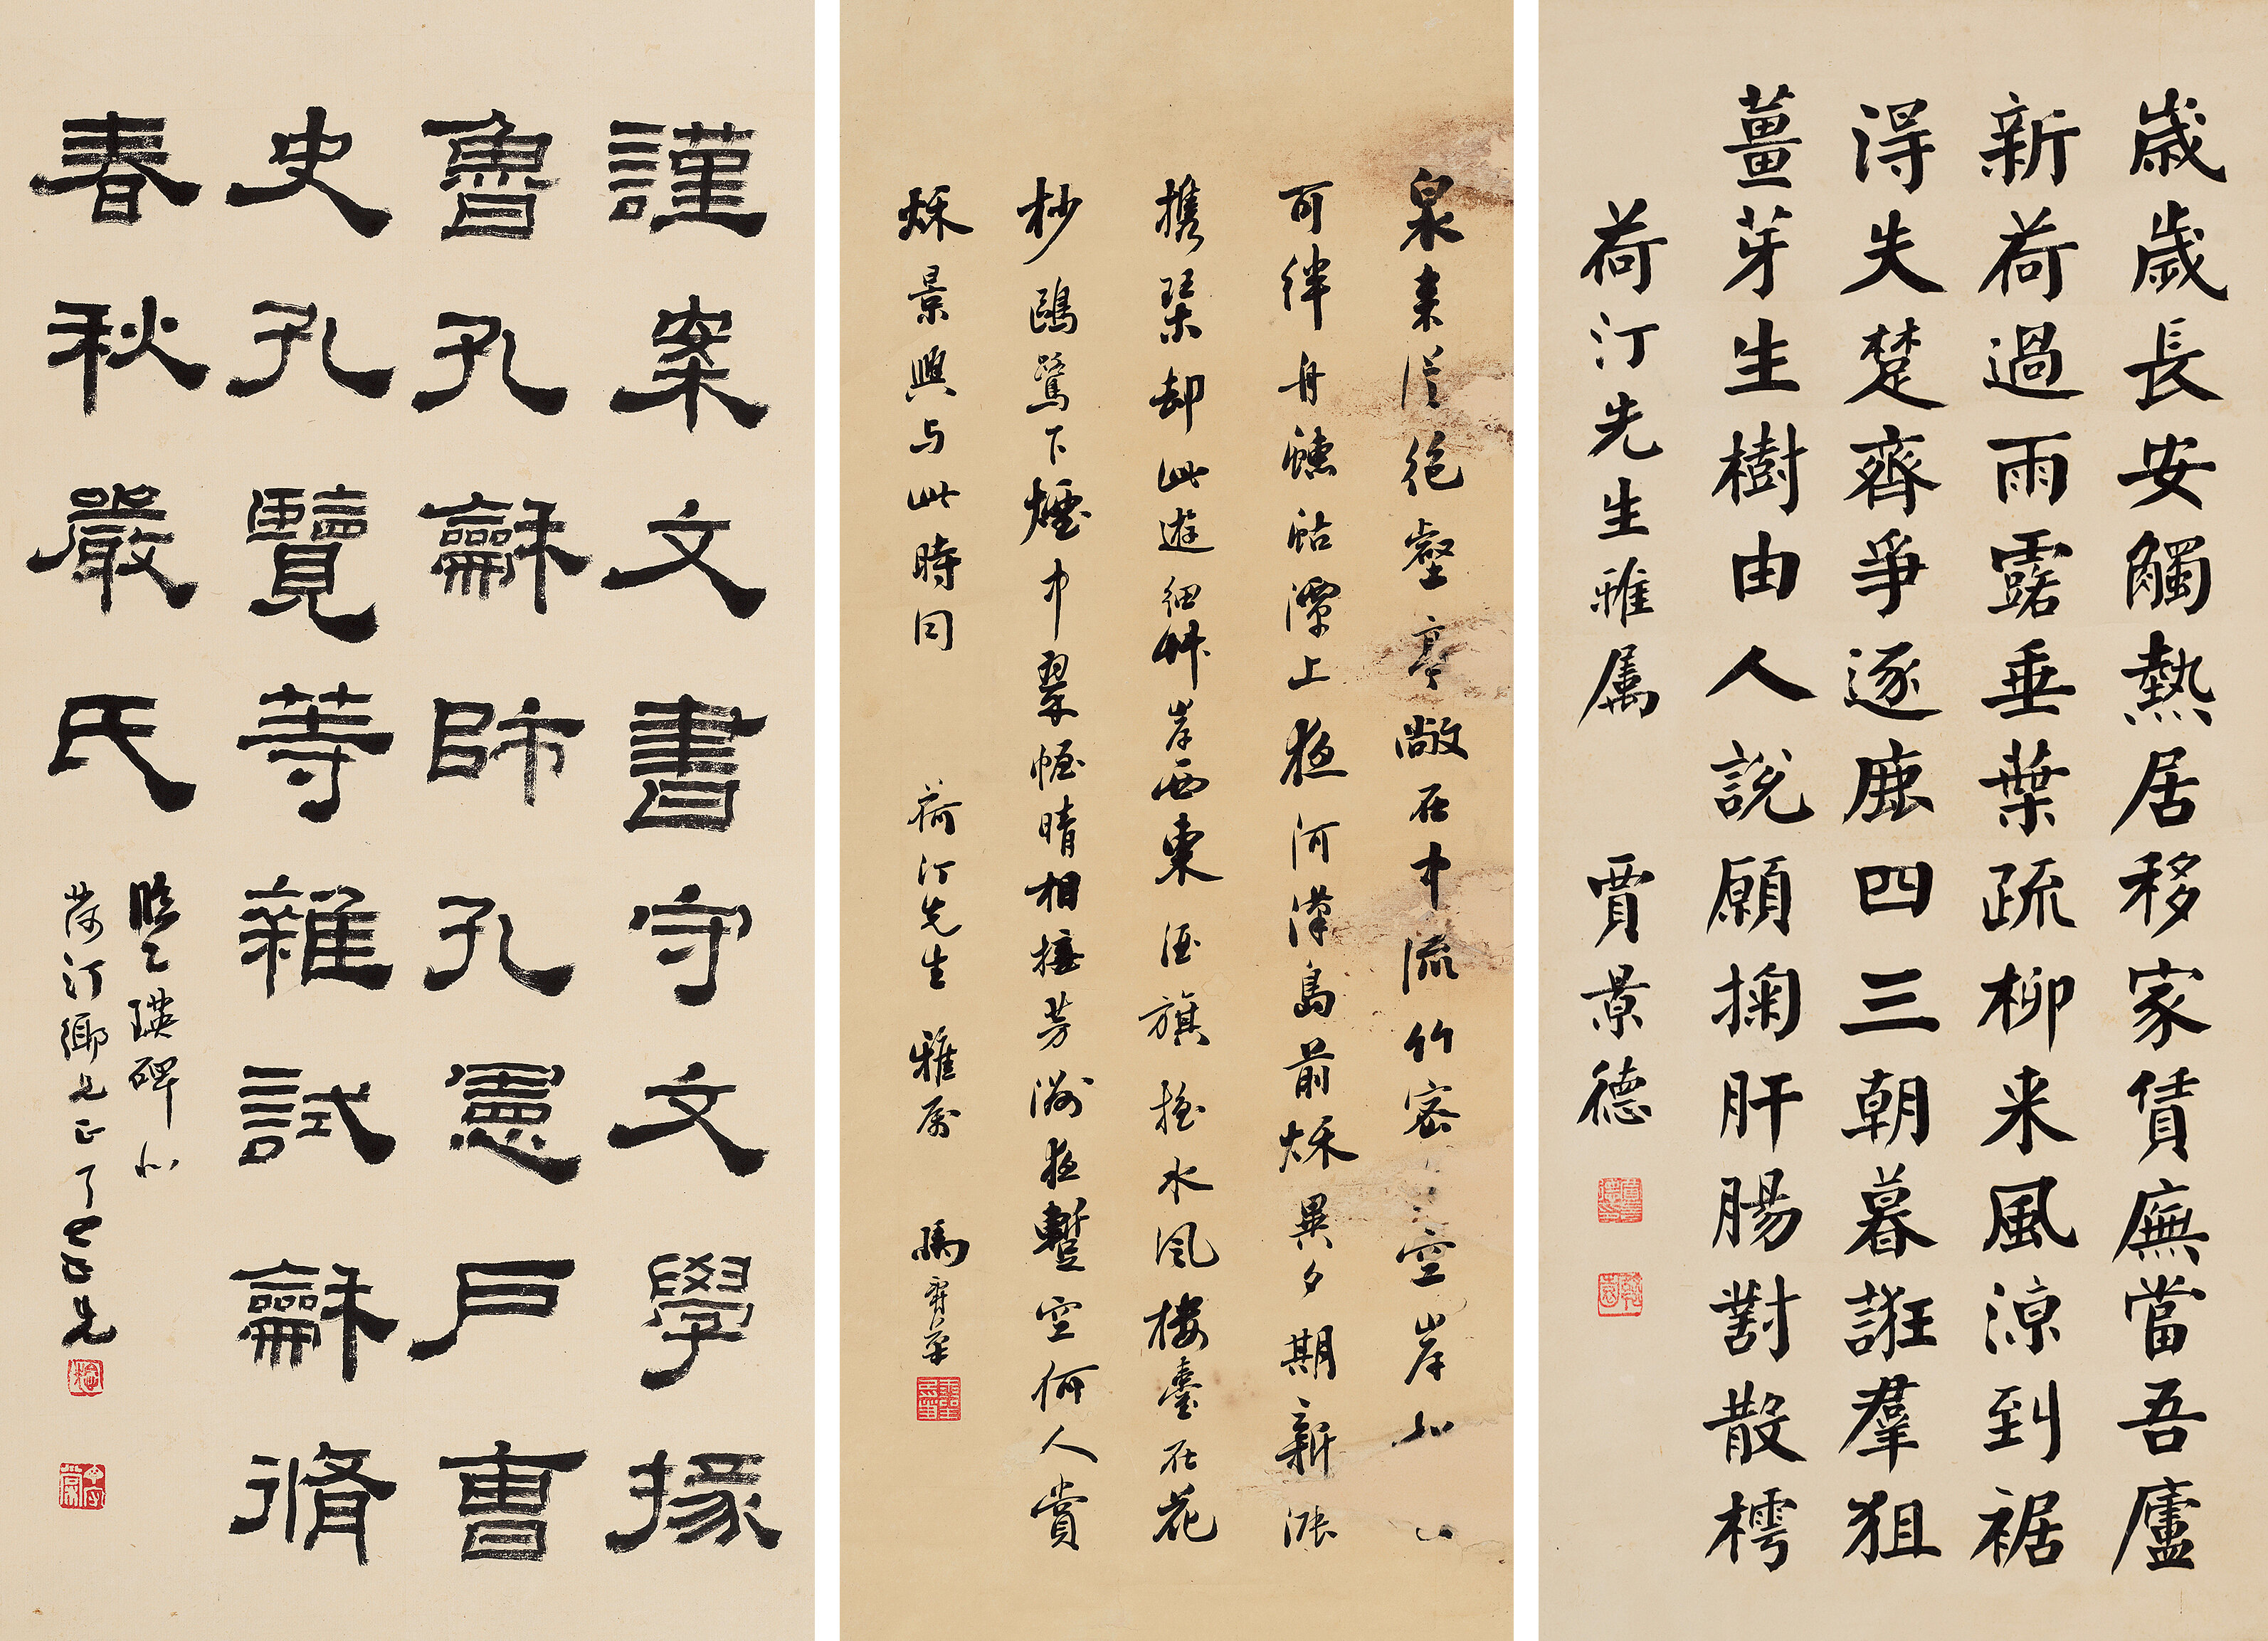 歲歲長安觸熱居移家賃廡當吾廬
新荷過雨露垂葉疏柳来風涼到裾
得失楚齊爭逐鹿四三朝暮誑羣狙
薑芽生樹由人說願掬肝腸對散樗
荷汀先生雅属 賈景德
泉来從絶壑亭敞在中流竹密空岸
可絆舟蟪蛄潭上夜河漢島前秋異夕期新漲
携琴却此遊細草岸西東酒旗摇水風樓臺在花
杪鷗鷺下煙中翠幄晴相接芳洲夜暫空何人賞
秋景興与此時同 荷汀先生雅属
謹案文書守文學掾
魯孔龢師孔憲戶曹
史孔覽等雜試龢脩
春秋嚴氏
臨乙瑛碑
荷汀鄉兄正